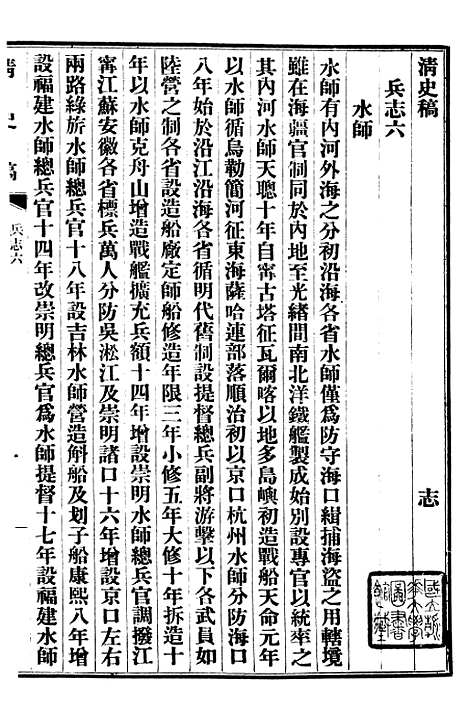 清史稿
兵志六 志
水師
水師有內河外海之分初沿海各省水師僅爲防守海口緝捕海盜之用轄境
雖在海疆官制同於內地至光緒間南北洋鐵艦製成始別設專官以統率之
其內河水師天聰十年自甯古塔征瓦爾喀以地多島嶼初造戰船天命元年
以水師循烏勒簡河征東海薩哈連部落順治初以京口杭州水師分防海口
八年始於沿江沿海各省循明代舊制設提督總兵副將游擊以下各武員如
陸營之制各省設造船廠定師船修造年限三年小修五年大修十年拆造十
年以水師克舟山增造戰艦擴充兵額十四年增設崇明水師總兵官調撥江
甯江蘇安徽各省標兵萬人分防吳淞江及崇明諸口十六年增設京口左右
兩路綠旂水師總兵官十八年設吉林水師營造斛船及划子船康熙八年增
設福建水師總兵官十四年改崇明總兵官爲水師提督十七年設福建水師
清史稿
兵志六
一